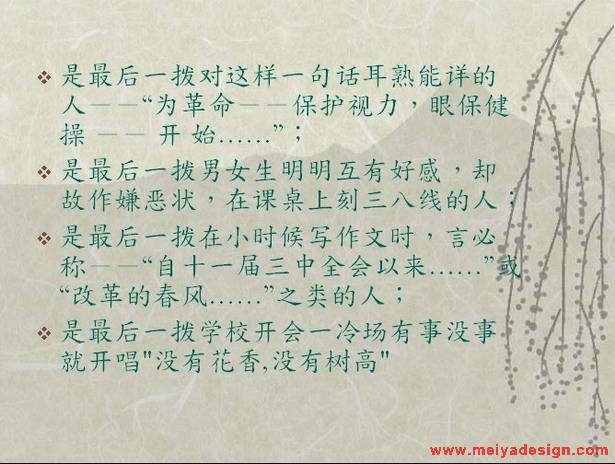 ❖ 是最后一拨对这样一句话耳熟能详的
人——“为革命——保护视力，眼保健
操 —— 开 始……”；
❖ 是最后一拨男女生明明互有好感，却
故作嫌恶状，在课桌上刻三八线的人；
❖ 是最后一拨在小时候写作文时，言必
称——“自十一届三中全会以来……”或
“改革的春风……”之类的人；
❖ 是最后一拨学校开会一冷场有事没事
就开唱"没有花香,没有树高"
www.meiyadesign.com